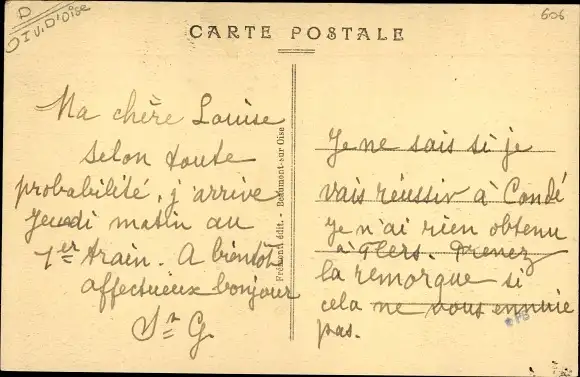 D
DIV. D'Oise
606
CARTE POSTALE
Ma chère Louise
Selon toute
probabilité, j'arrive
Jeudi matin au
1er train. A bientôt
affectueux bonjour
Sr G.
Frémont édit. - Beaumont-sur Oise
Je ne sais si je
vais réussir à Condé
Je n'ai rien obtenu
à Flers. Prenez
la remorque si
cela ne vous ennuie
pas.